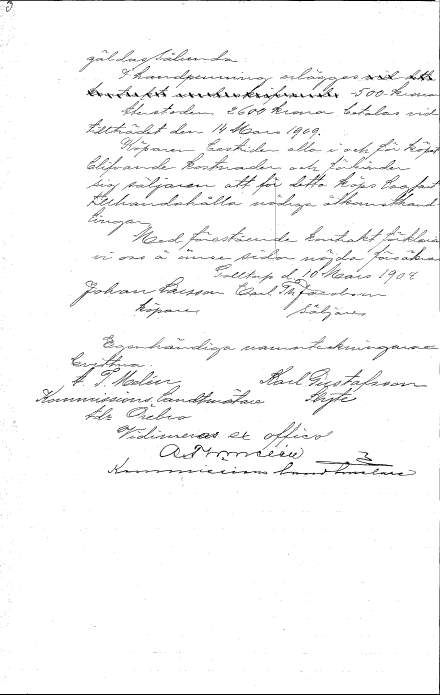 3
gäldas sålunda
I handpenning erlägges vid detta
500 krona
Återstoden 2600 krona betalas vid
tillträdet den 14 Mars 1909.
Köparen bestrider alla i och för köpet
blifvande kostnader och förbinder
sig säljaren att för detta köps lagfart
tillhandahålla nödiga åtkomsthand
lingar
Med förestående kontrakt förklara
vi oss å ömse sidor nöjda försäkras
d. 10 Mars 1908
Johan Larsson Carl Th Jacobson
köpare säljare
Egenhändiga namnteckningarne
bevittna.
A. T. Karl Gustafsson
Kommissions Landtmätare
adr Örebro
Vidimeras ex officio
3
Kommissions landtmätare